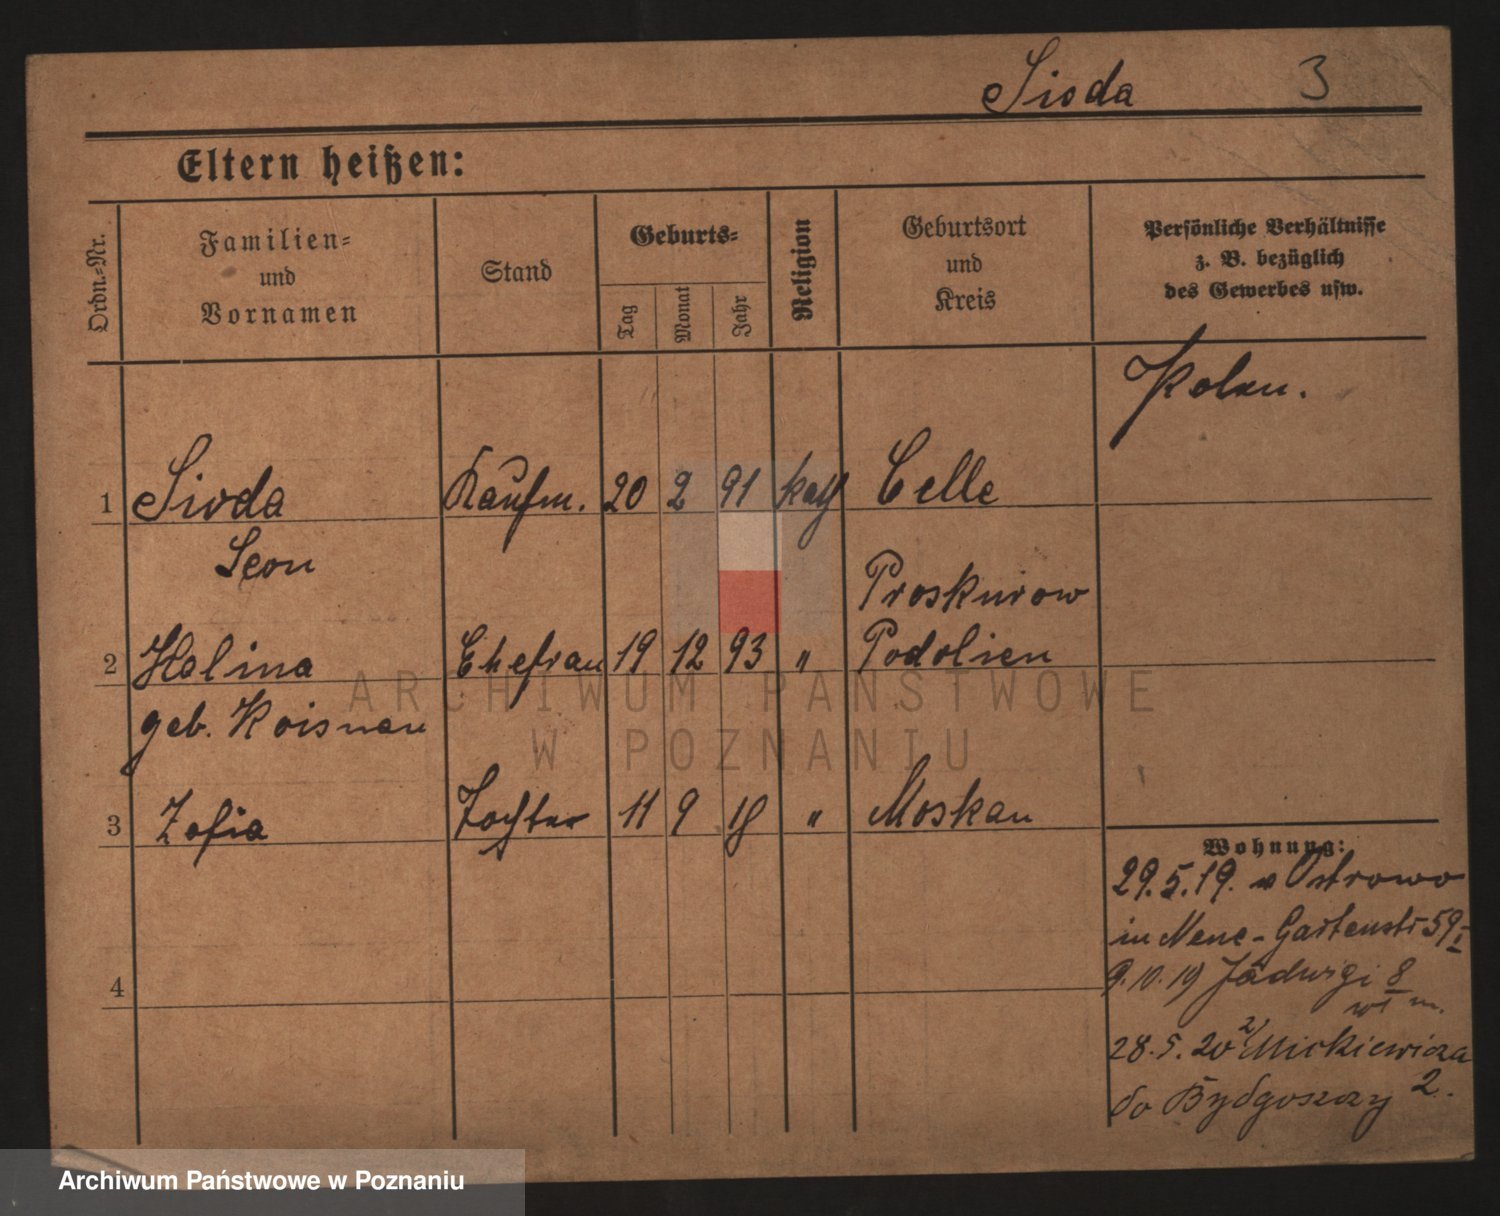 Sioda 3
Eltern heißen:
Ordn.-Nr.
Familien-
und
Vornamen
Stand
Geburts-
Tag
Monat
Jahr
Religion
Geburtsort
und
Kreis
Persönliche Verhältnisse
z. B. bezüglich
des Gewerbes usw.
Polen.
1 Sioda Kaufm. 20 2 91 kath Celle
Leon
Proskurow
2 Halina Ehefrau 19 12 93 " Podolien
geb. Koisman
3 Zofia Tochter 11 9 18 " Moskau
Wohnung:
29.5.19. v Ostrowo
in Neue-Gartenstr 59 I
4
9.10.19 Jadwigi 8
w m.
28.5.20 2/ Mickiewicza
do Bydgoszczy 2.
ARCHIWUM PAŃSTWOWE
W POZNANIU
Archiwum Państwowe w Poznaniu